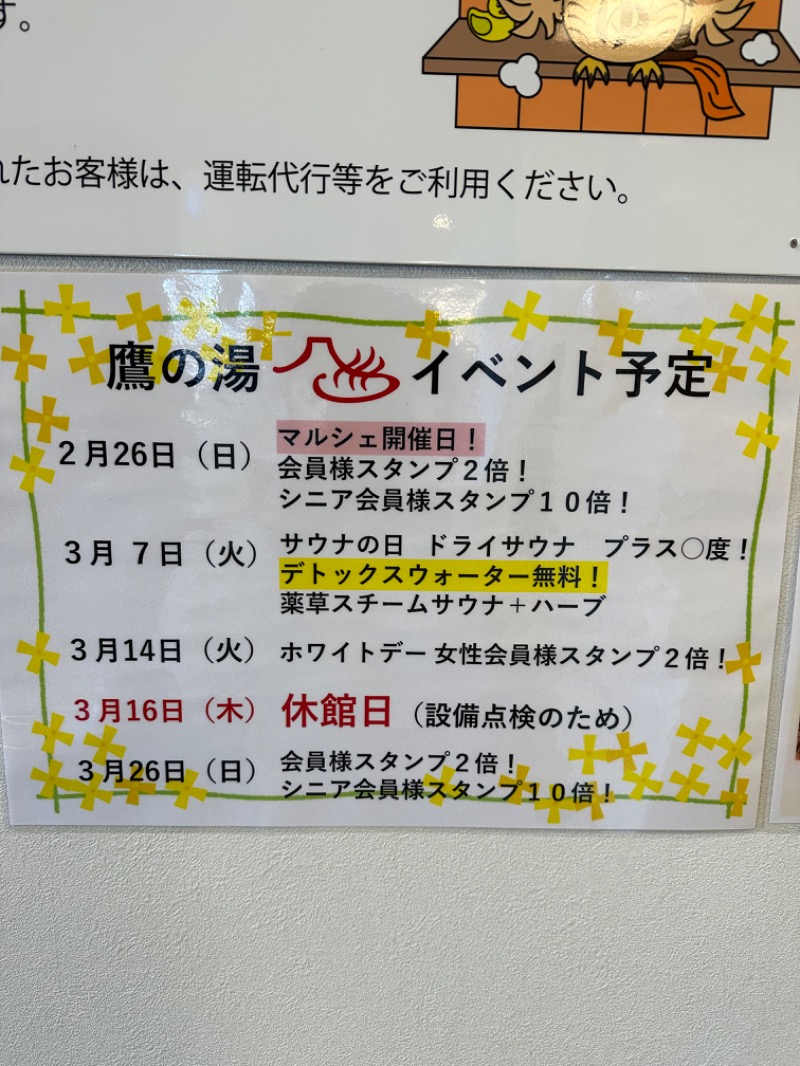 す。
れたお客様は、運転代行等をご利用ください。
鷹の湯 イベント予定
2月26日（日） マルシェ開催日！
会員様スタンプ２倍！
シニア会員様スタンプ１０倍！
３月 ７日（火） サウナの日 ドライサウナ　プラス○度！
デトックスウォーター無料！
薬草スチームサウナ＋ハーブ
３月14日（火） ホワイトデー 女性会員様スタンプ２倍！
３月16日（木） 休館日（設備点検のため）
３月26日（日） 会員様スタンプ２倍！
シニア会員様スタンプ１０倍！